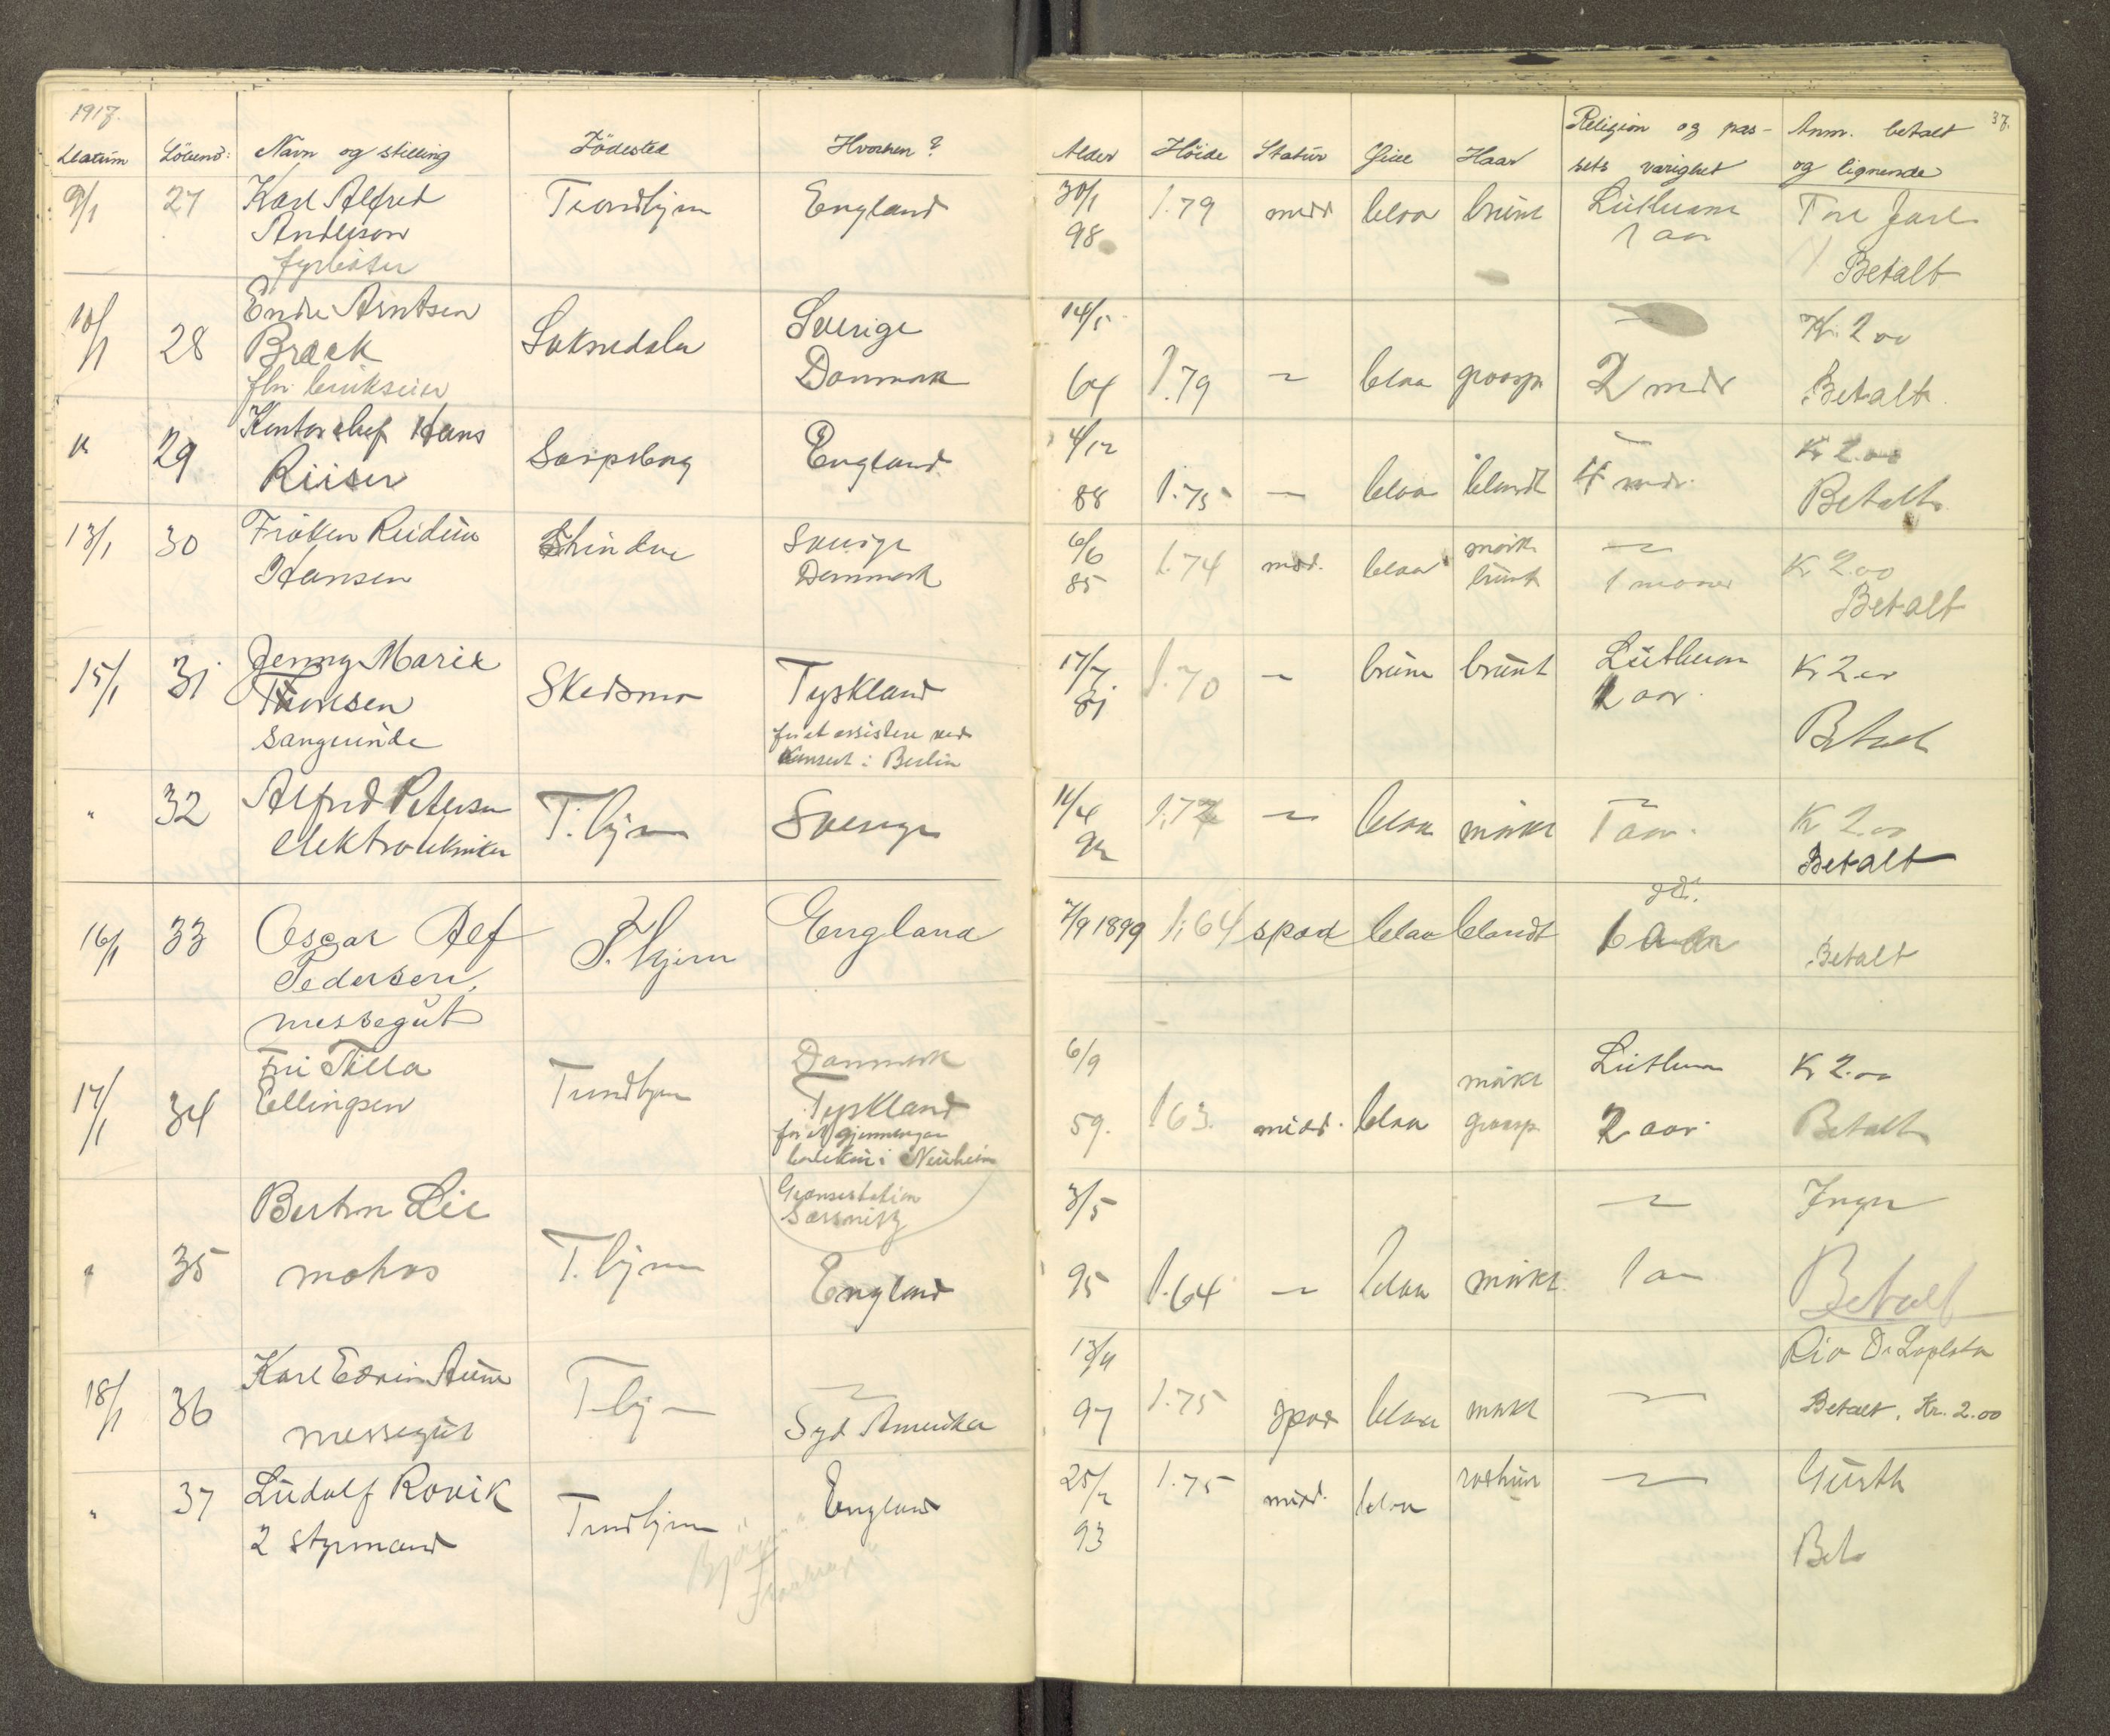 1917.
Datum Löbend: Navn og stilling Födested Hvorhen?
9/1 27 Karl Alfred Trondhjem England
Andersen
fyrböter
10/1 28 Endre Arntsen Soknedalen Sverige
Bræck Danmark
fhv.
" 29 Kontorchef Hans Sarpsborg England
Riiser
13/1 30 Fröken Reidun Sverige
Hansen Danmark
15/1 31 Jenny Marie Skedsmo Tyskland
Thoresen
Sangerinde for at assistere ved
Konsert i Berlin
" 32 Alfred Petersen T.hjem Sverige
elektrotekniker
16/1 33 Oscar Alf T.hjem England
Pedersen,
messegut
17/1 34 Fru Tilla Trondhjem Danmark
Ellingsen Tyskland
for at gjennemgaa
i Nauheim
Grænsestation
Sassnitz
" 35 Lie T.hjem England
matros
18/1 36 Karl Edvin Aune T.hjem ~
messegut Syd Amerika
" 37 Ludolf Rovik Trondhjem England
2 styrmand
37.
Alder Höide Statur Öine Haar Religion og pas- Anm. betalt
sets varighet og lignende
30/1 98 1.79 midd blaa brunt Luthersk Tore Jarl
1 aar Betalt
14/5 64 1.79 ~ blaa graaspr ~ Kr. 2.00
2 mdr Betalt
4/12 88 1.75 ~ blaa blondt ~ Kr 2.00
4 mdr. Betalt
6/6 85 1.74 mid. blaa mörk ~ Kr 2.00
brunt 1 maaned Betalt
17/7 81 1.70 ~ brune brunt Luthersk Kr 2.00
aar. Betalt
14/4 92 1.72 ~ blaa mörkt ~ Kr 2.00
1 aar. Betalt
7/9 1899 1.64 spæd blaa blondt
Betalt
6/9 59. 1.63. midd. blaa mörkt Luthersk Kr 2.00
graaspr 2 aar. Betalt
3/5 95 1.64 ~ blaa mörkt ~
1 aar Betalt
13/11 97 1.75 spæd blaa mörkt ~ Rio De Laplata
Betalt. Kr. 2.00
25/2 93 1.75 midd. blaa rödbrun ~ Gurth
Bet.